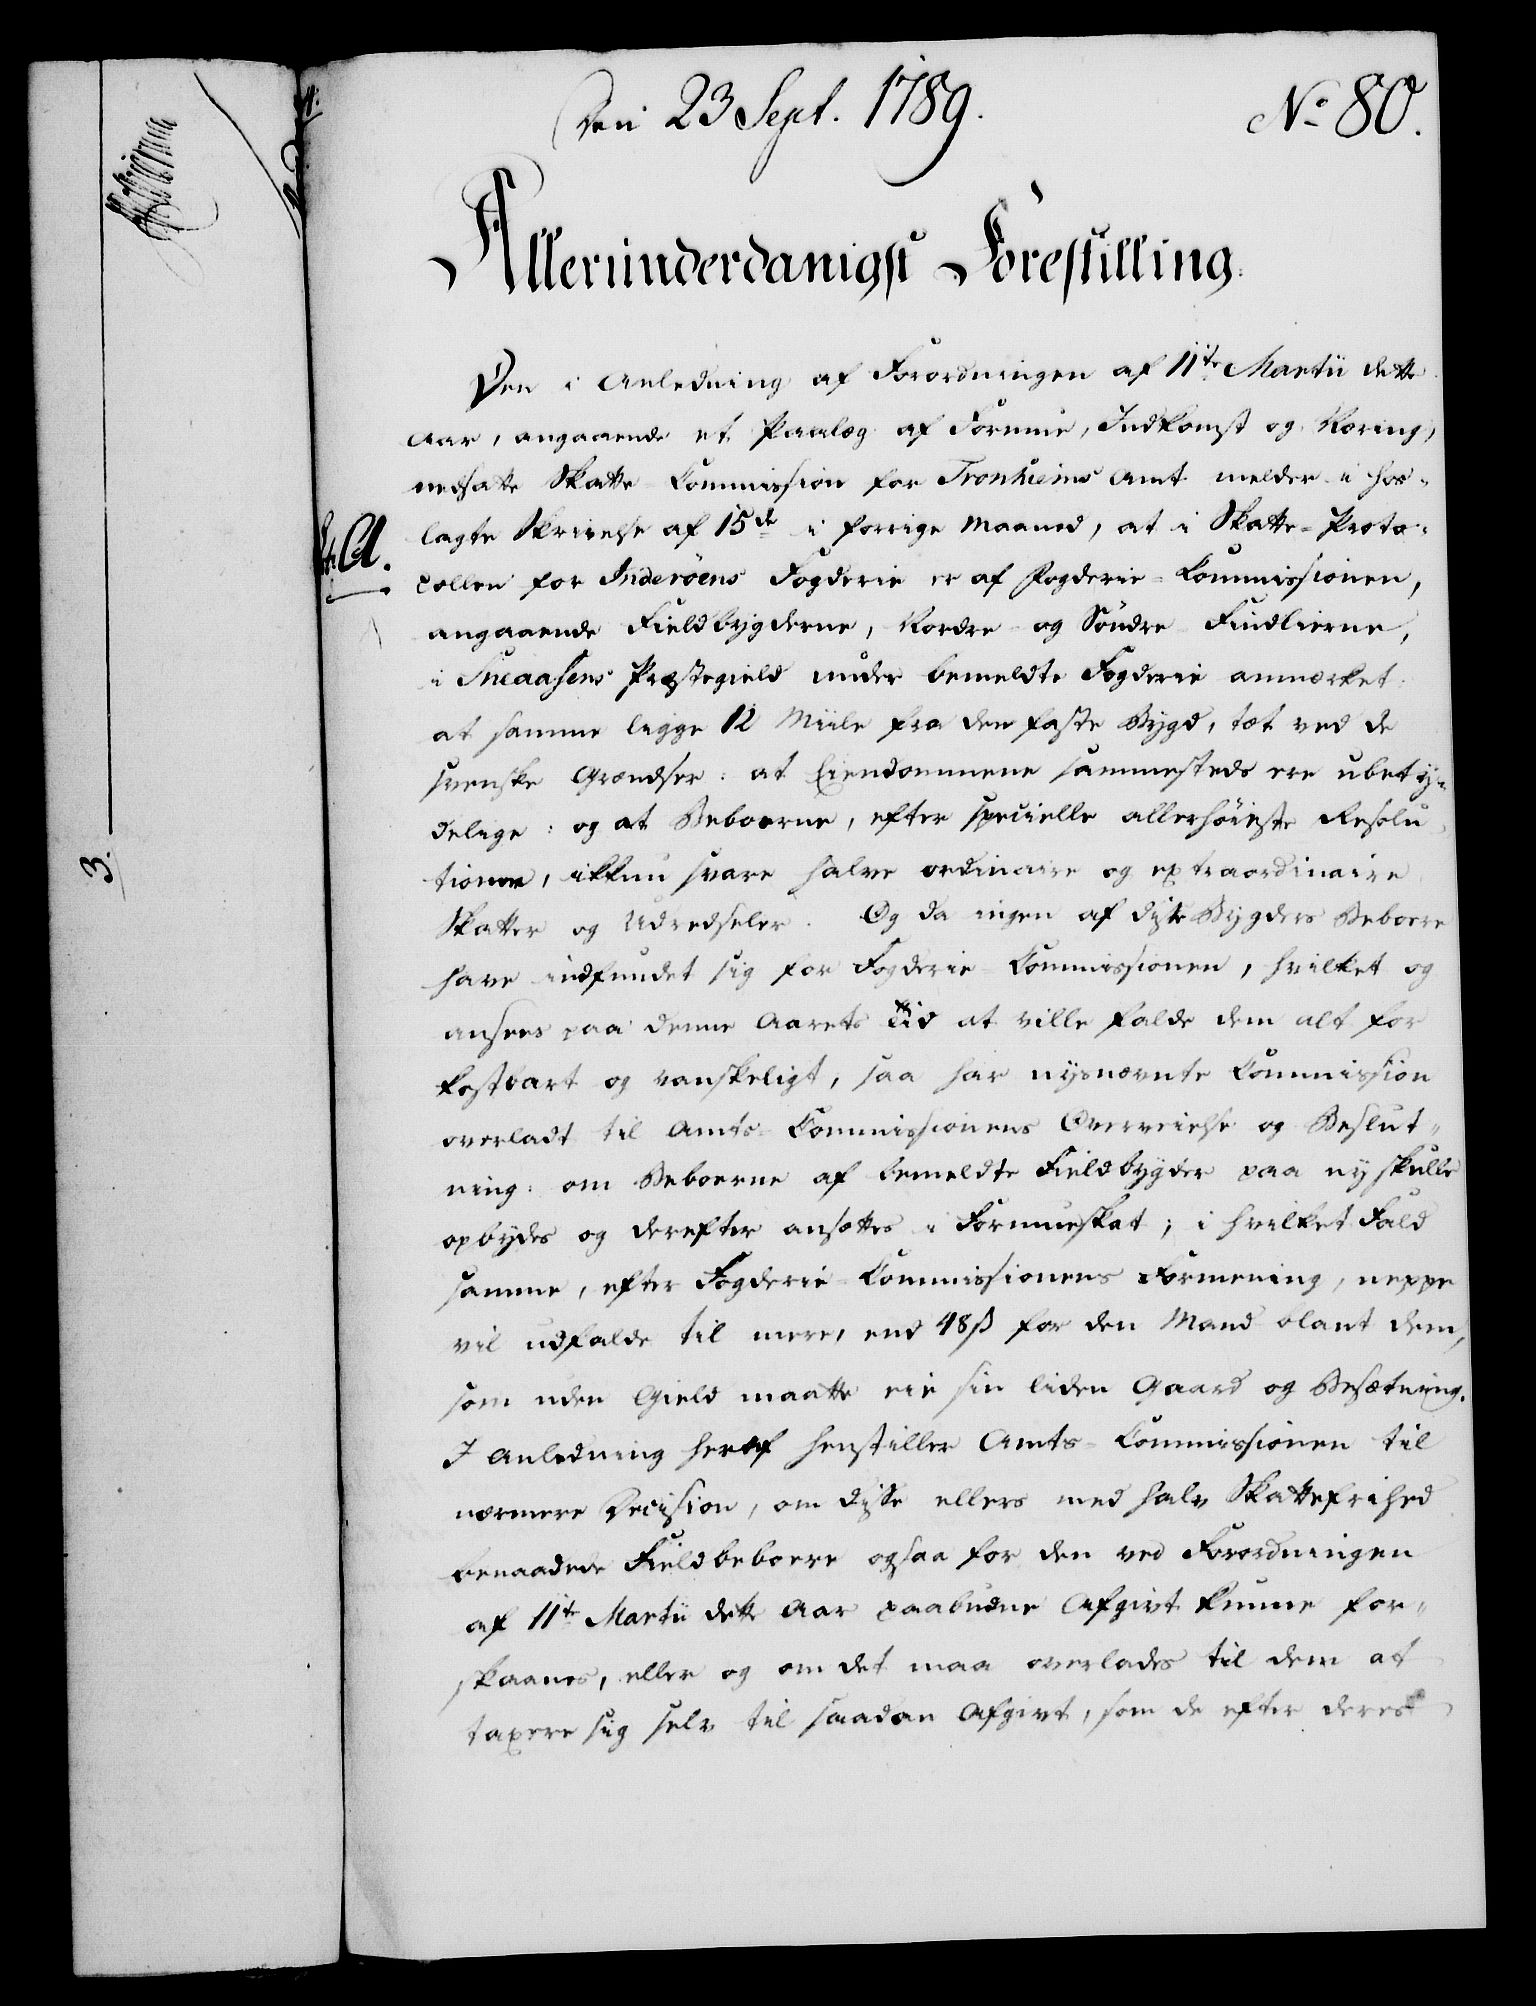 Den 23 Sept. 1789.
No 80.
Allerunderdanigst Forestilling.
Den i Anledning af Forordningen af 11te Martii dette
Aar, angaaende et Paalæg af Formue, Indkomst og Næring,
nedsatte Skatte-Commission for Tronhiems Amt melder i hos-
lagte Skrivelse af 15de i forrige Maaned, at i Skatte-Proto-
A.
collen for Inderöens Fogderie er af Fogderie-Commissionen,
angaaende Fieldbygderne, Nordre og Söndre Findlierne,
i Sneaasens Præstegield under bemeldte Fogderie anmærket:
at samme ligge 12 Miile fra den faste Bygd, tæt ved de
svenske Grændser: at Eiendommene sammesteds ere ubety-
delige: og at Beboerne, efter specielle allerhöieste Resolu-
tioner, ikkun svare halve ordinaire og extraordinaire
Skatter og Udredseler. Og da ingen af disse Bygders Beboere
have indfundet sig for Fogderie-Commissionen, hvilket og
ansees paa denne Aarets Tid at ville falde dem alt for
kostbart og vanskeligt, saa har nysnævnte Commission
overladt til Amts-Commissionens Overveielse og Beslut-
ning: om Beboerne af bemeldte Fieldbygder paa ny skulle
opbydes og derefter ansættes i Formueskat; i hvilket Fald
samme, efter Fogderie-Commissionens Formening, neppe
vil udfalde til mere, end 48 ß for den Mand blant dem,
som uden Gield maatte eie sin liden Gaard og Besætning.
I Anledning heraf henstiller Amts-Commissionen til
nærmere Decision, om disse ellers med halv Skattefrihed
benaadede Fieldbeboere ogsaa for den ved Forordningen
af 11te Martii dette Aar paabudne Afgivt kunne for-
skaanes, eller og om det maa overlades til dem at
taxere sig selv til saadan Afgivt, som de efter deres
3.